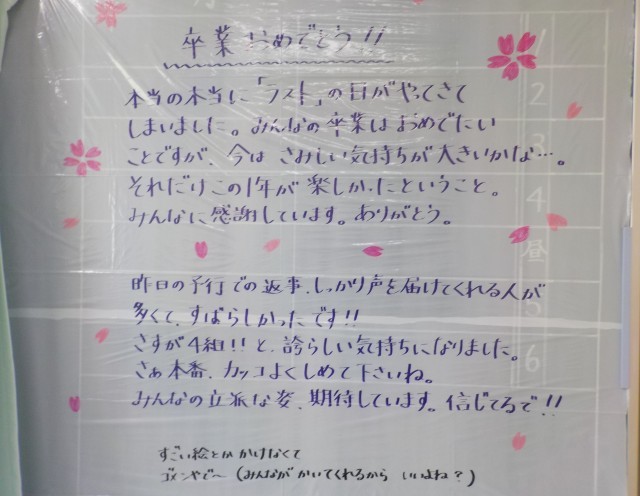 卒業おめでとう!!
本当の本当に「ラスト」の日がやってきて
しまいました。みんなの卒業はおめでたい
ことですが、今は さみしい気持ちが大きいかな…。
それだけこの1年が楽しかったということ。
みんなに感謝しています。ありがとう。
昨日の予行での返事、しっかり声を届けてくれる人が
多くて、すばらしかったです!!
さすが4組!! と、誇らしい気持ちになりました。
さぁ本番、カッコよくしめて下さいね。
みんなの立派な姿、期待しています。信じてるで!!
すごい絵とかかけなくて
ゴメンやで〜(みんながかいてくれるから いいよね?)
1
2
3
4
昼
5
6